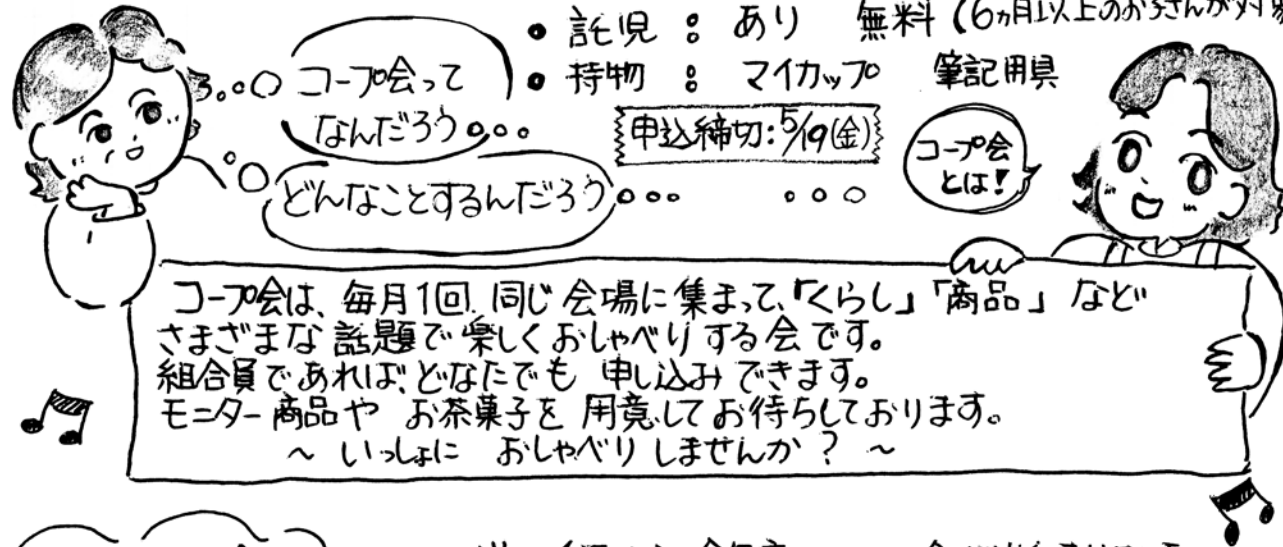 • 託児 : あり 無料 (6ヵ月以上のお子さんが対象
• 持物 : マイカップ 筆記用具
申込締切:5/19(金)
コープ会って
なんだろう。。。
どんなことするんだろう
コープ会
とは!
コープ会は、毎月1回 同じ会場に集まって、「くらし」「商品」など
さまざまな話題で楽しくおしゃべりする会です。
組合員であれば、どなたでも 申し込みできます。
モニター商品や お茶菓子を 用意してお待ちしております。
~ いっしょに おしゃべりしませんか? ~